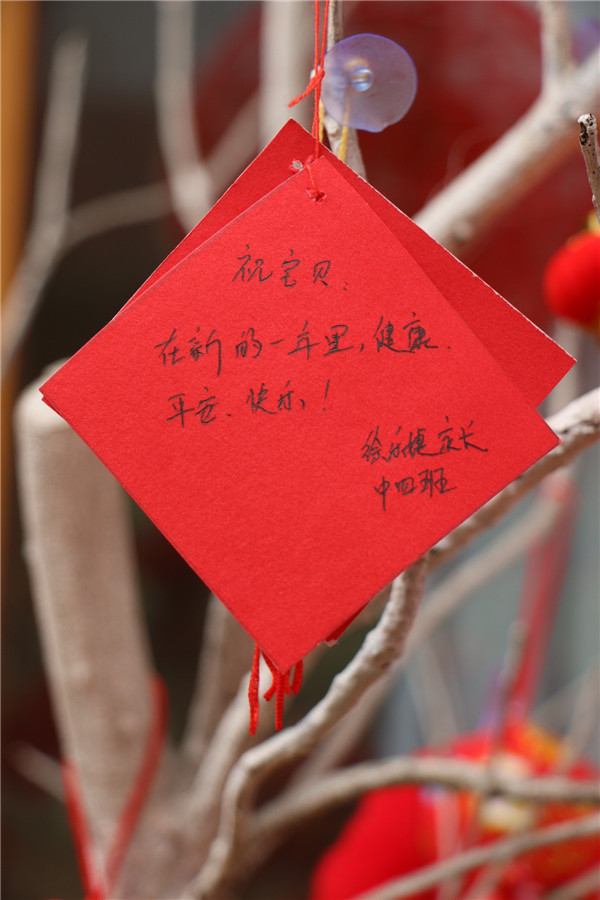 祝宝贝、
在新的一年里，健康、
平安、快乐！
徐乐婕家长
中四班